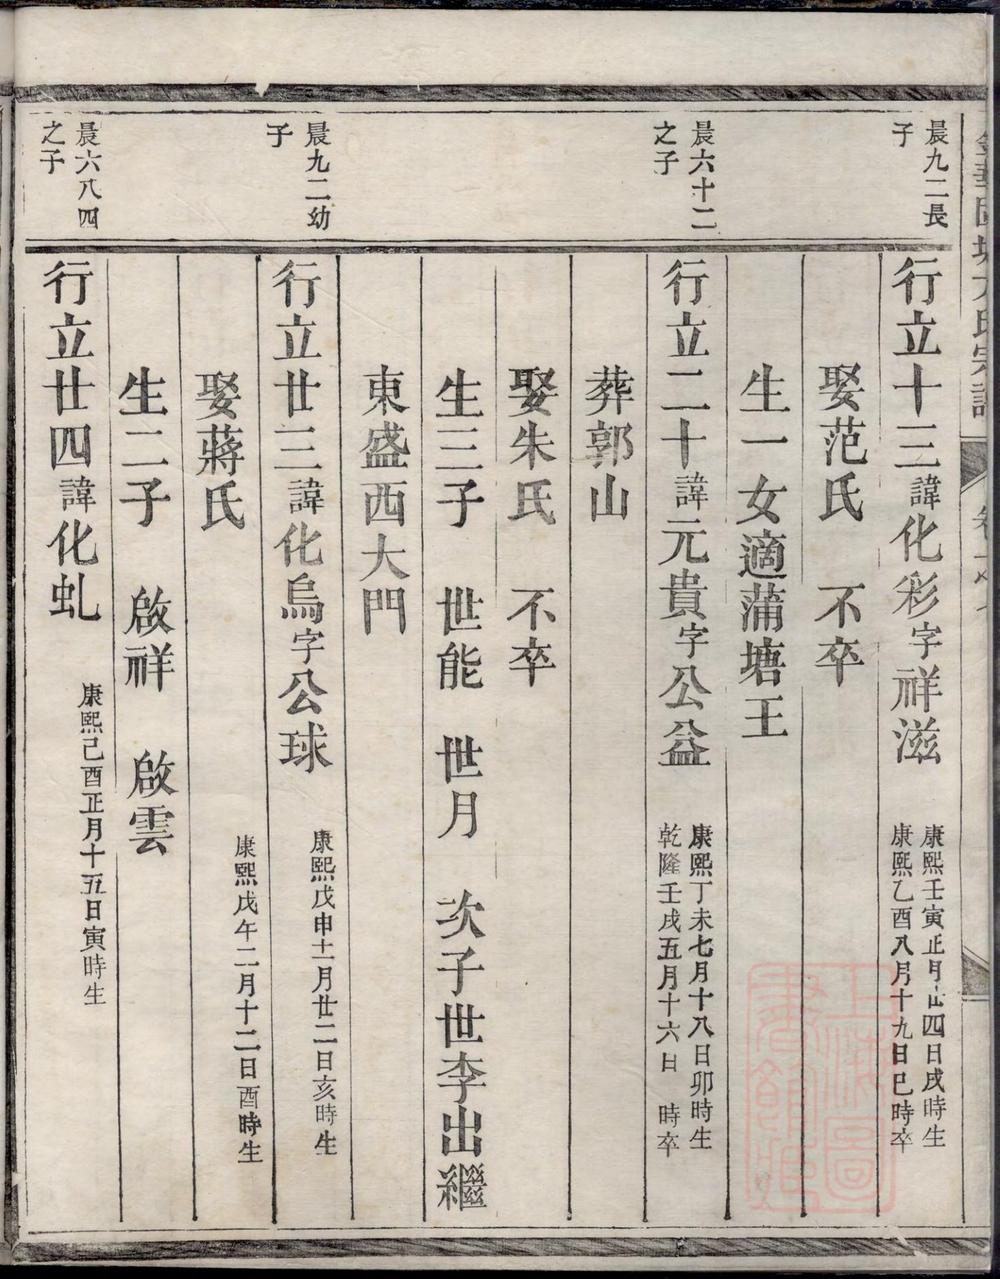 晨九二長
子
行立十三諱化彩字祥滋
康熙壬寅正月廿四日戌時生
康熙乙酉八月十九日巳時卒
娶范氏 不卒
生一女適蒲塘王
晨六十二
之子
行立二十諱元貴字公益
康熙丁未七月十八日卯時生
乾隆壬戌五月十六日 時卒
葬郭山
娶朱氏 不卒
生三子 世能 世月 次子世李出繼
東盛西大門
晨九二幼
子
行立廿三諱化烏字公球
康熙戊申十一月廿二日亥時生
娶蔣氏
康熙戊午二月十二日酉時生
生二子 啟祥 啟雲
晨六八四
之子
行立廿四諱化虬
康熙己酉正月十五日寅時生